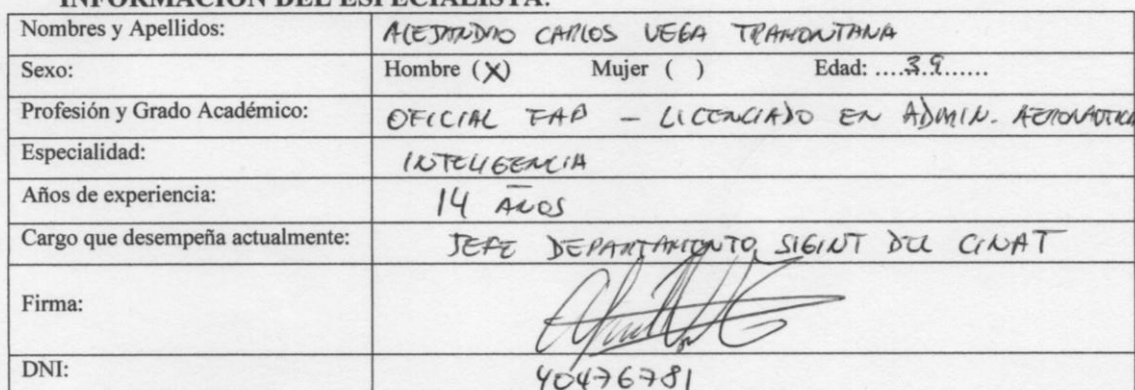 INFORMACIÓN DEL ESPECIALISTA:
Nombres y Apellidos: ALEJANDRO CARLOS VEGA TRAMONTANA
Sexo: Hombre (X) Mujer ( ) Edad: ....39......
Profesión y Grado Académico: OFICIAL FAP - LICENCIADO EN ADMIN. AERONAUTICA
Especialidad: INTELIGENCIA
Años de experiencia: 14 AÑOS
Cargo que desempeña actualmente: JEFE DEPARTAMENTO SIGINT DEL CINAT
Firma:
DNI: 40476781